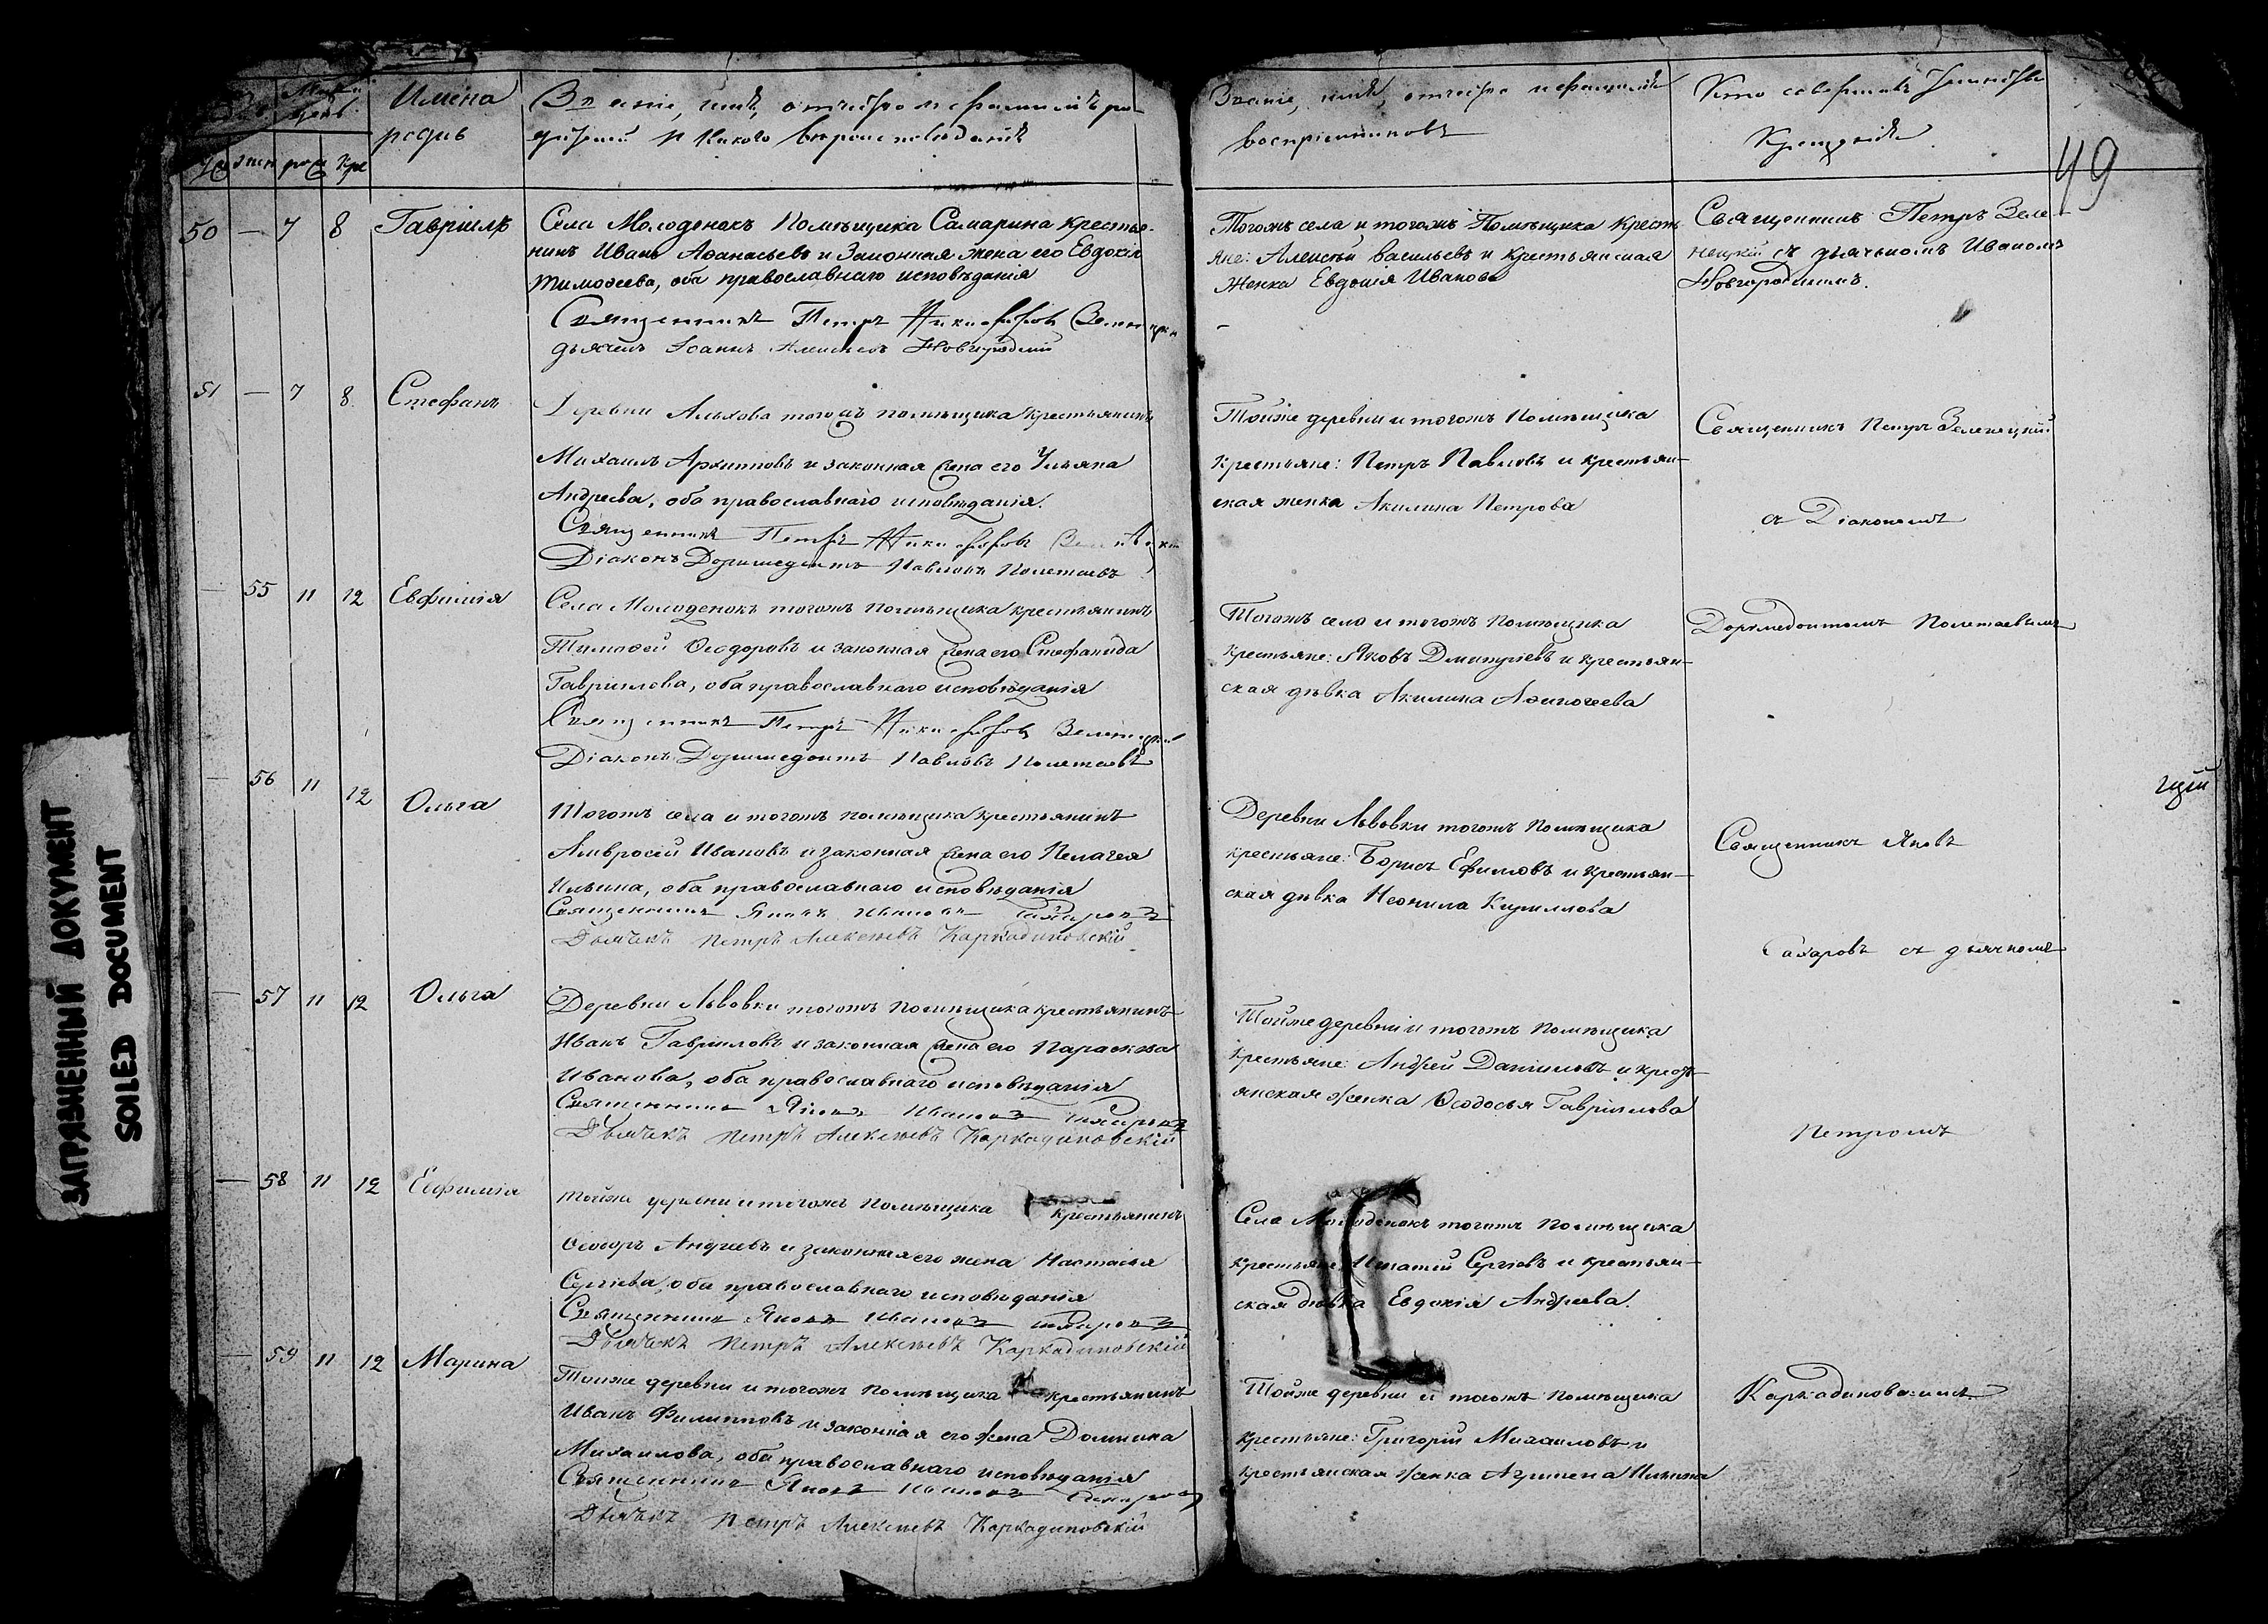 Имена
родив
Званіе, имя, отчество и фамилія ро
дителей и какого вѣроисповѣданія
муж жен рож кре
Званіе, имя, отчество и фамилія
воспріемниковъ
Кто совершалъ таинство
Крещенія
49
50 — 7 8 Гавріилъ
Села Молоденокъ Помѣщика Самарина крестья-
нинъ Иванъ Аѳанасьевъ и Законная Жена его Евдокія
Тимоѳеева, оба православнаго исповѣданія
Священникъ Петръ Никифоровъ Зеленецкій
дьячекъ Іоаннъ Алексѣевъ Новгородскій
Тогожъ села и тогожъ Помѣщика Кресть
яне: Алексѣй Васильевъ и Крестьянская
Женка Евдокія Иванова
Священникъ Петръ Зеле-
нецкій съ дьячкомъ Иваномъ
Новгородскимъ.
51 — 7 8 Стефанъ
Деревни Альхова тогожъ помѣщика крестьянинъ
Михаилъ Архиповъ и законная жена его Ульяна
Андреева, оба православнаго исповѣданія.
Священникъ Петръ Никифоровъ
Діаконъ Доримедонтъ Павловъ Полетаевъ
Тойже деревни и тогожъ Помѣщика
крестьяне: Петръ Павловъ и крестьян-
ская женка Акилина Петрова
Священникъ Петръ Зеленецкій
съ Діакономъ
— 55 11 12 Евфимія
Села Молоденокъ тогожъ помѣщика крестьянинъ
Тимоѳей Ѳеодоровъ и законная жена его Стефанида
Гавриилова, оба православнаго исповѣданія
Священникъ Петръ Никифоровъ Зеленецкій
Діаконъ Доримедонтъ Павловъ Полетаевъ
Тогожъ села и тогожъ помѣщика
крестьяне: Яковъ Димитріевъ и крестьян-
ская дѣвка Акилина Аѳиногеева
Доримедонтомъ Полетаевымъ
— 56 11 12 Ольга
Тогожъ села и тогожъ помѣщика крестьянинъ
Амвросій Ивановъ и законная жена его Пелагея
Ильина, оба православнаго исповѣданія
Священникъ Яковъ Ивановъ Сахаровъ
Дьячекъ Петръ Алексѣевъ Каркадиновскій
Деревни Львовки тогожъ помѣщика
крестьяне: Борисъ Ефимовъ и крестьян-
ская дѣвка Неонила Кириллова
Священникъ Яковъ
Сахаровъ съ дьячкомъ
— 57 11 12 Ольга
Деревни Львовки тогожъ помѣщика крестьянинъ
Иванъ Гавриловъ и законная жена его Параскева
Иванова, оба православнаго исповѣданія
Священникъ Яковъ Ивановъ Сахаровъ
Дьячекъ Петръ Алексѣевъ Каркадиновскій
Тойже деревни и тогожъ помѣщика
крестьяне: Андрей Даниловъ и кресть
янская женка Ѳеодосья Гавриилова
Петромъ
— 58 11 12 Евфимія
Тойже деревни и тогожъ помѣщика крестьянинъ
Ѳеодоръ Андреевъ и законная его жена Настасья
Сергіева, оба православнаго исповѣданія
Священникъ Яковъ Ивановъ Сахаровъ
Дьячекъ Петръ Алексѣевъ Каркадиновскій
Села Молоденокъ тогожъ помѣщика
крестьяне: Игнатій Сергіевъ и крестьян-
ская дѣвка Евдокія Андреева.
— 59 11 12 Марина
Тойже деревни и тогожъ помѣщика крестьянинъ
Иванъ Филипповъ и законная его жена Домника
Михаилова, оба православнаго исповѣданія
Священникъ Яковъ Ивановъ Сахаровъ
Дьячекъ Петръ Алексѣевъ Каркадиновскій
Тойже деревни и тогожъ помѣщика
крестьяне: Григорій Михаиловъ и
крестьянская женка Агрипена Ильина
Каркадиновскимъ
ЗАГРЯЗНЕННЫЙ ДОКУМЕНТ
SOILED DOCUMENT